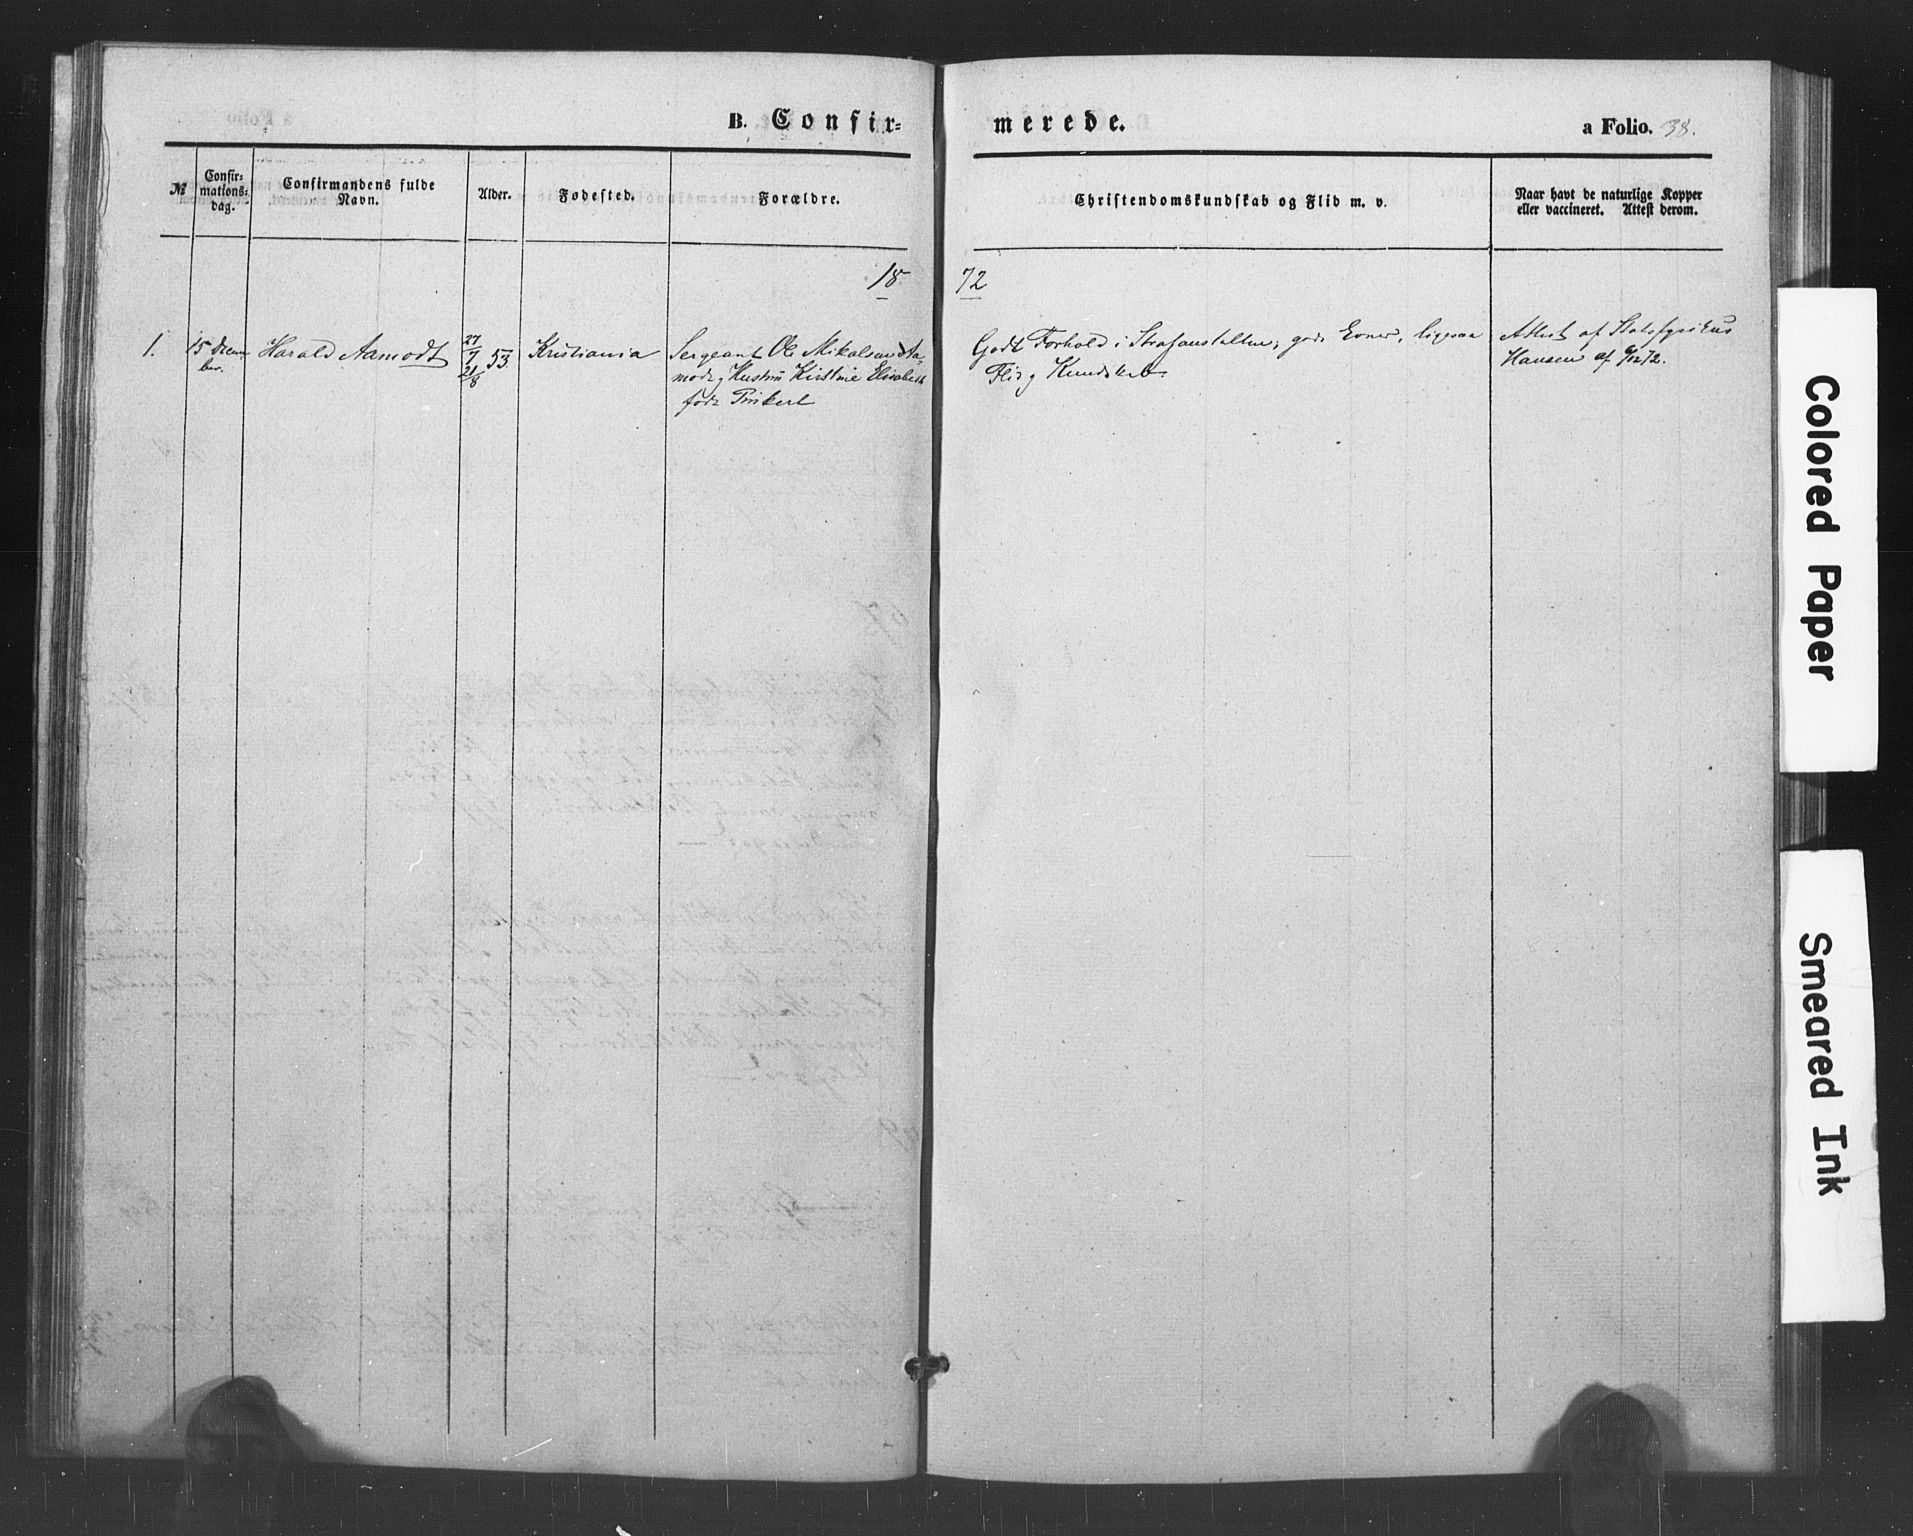 B. Confir=
merede.
a Folio. 38.
№
Confir=
mations=
dag.
Confirmandens fulde
Navn.
Alder.
Fødested.
Forældre.
Christendomskundskab og Flid m. v.
Naar havt de naturlige Kopper
eller vaccineret. Attest derom.
18
72
1.
15 Decem
ber.
Harald Aamodt
27
7 53
21/8
Kristiania
Sergeant Ole Mikalsen Aa-
modt og Hustru Kirstine Elisabeth
født Pinkert
Godt Forhold i Strafanstalten; gode Evner, ligesaa
Flid og Kundskab
Attest af Stadsfysikus
Hansen af 6/12 72.
Colored Paper
Smeared Ink